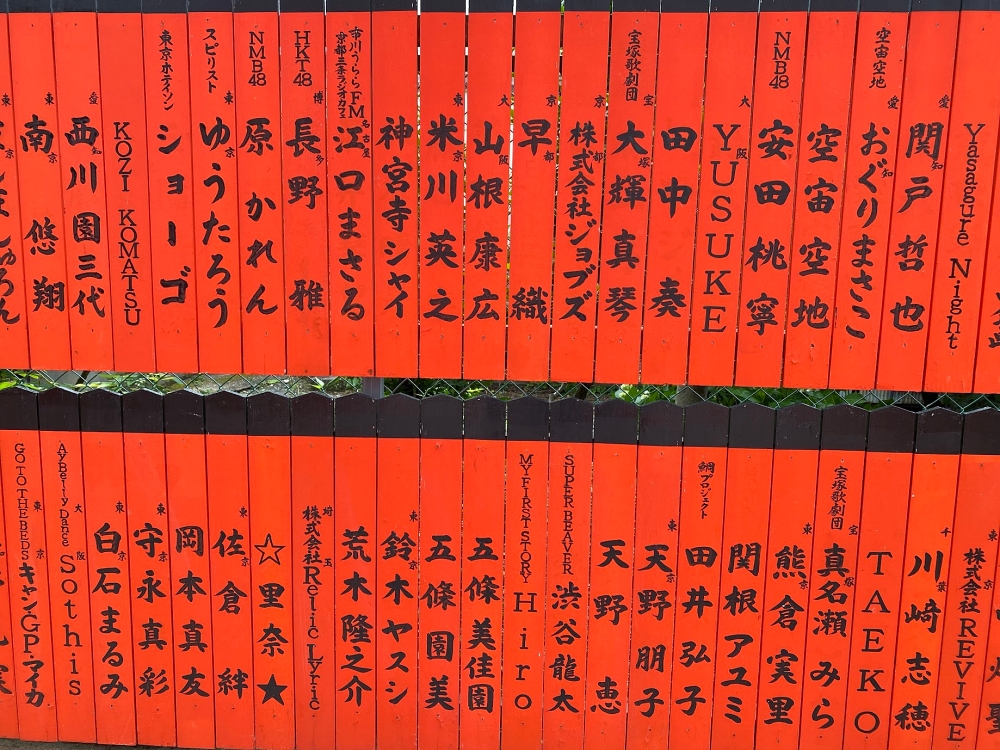 Yasagure Night
愛知 関戸哲也
空宙空地 愛知 おぐりまさこ
空宙空地
NMB48 安田桃寧
大阪 YUSUKE
田中奏
宝塚歌劇団 宝塚 大輝真琴
京都 株式会社ジョブズ
京都 早織
大阪 山根康広
東京 米川英之
神宮寺シャイ
市川うらら FM 京都三条ラジオカフェ 名古屋 江口まさる
HKT48 博多 長野雅
NMB48 原かれん
スピリスト 東京 ゆうたろう
東京ホテイソン ショーゴ
KOZI KOMATSU
愛知 西川園三代
東京 南悠翔
東京 株式会社REVIVE
千葉 川崎志穂
TAEKO
宝塚歌劇団 宝塚 真名瀬みら
東京 熊倉実里
関根アユミ
鯛プロジェクト 田井弘子
東京 天野朋子
天野恵
SUPER BEAVER 渋谷龍太
MY FIRST STORY Hiro
五條美佳園
五條園美
東京 鈴木ヤスシ
荒木隆之介
埼玉 株式会社Relic Lyric.
☆里奈★
東京 佐倉絆
岡本真友
東京 守永真彩
東京 白石まるみ
Ay Belly Dance 大阪 Sothis
GO TO THE BEDS 東京 キャン・GP・マイカ